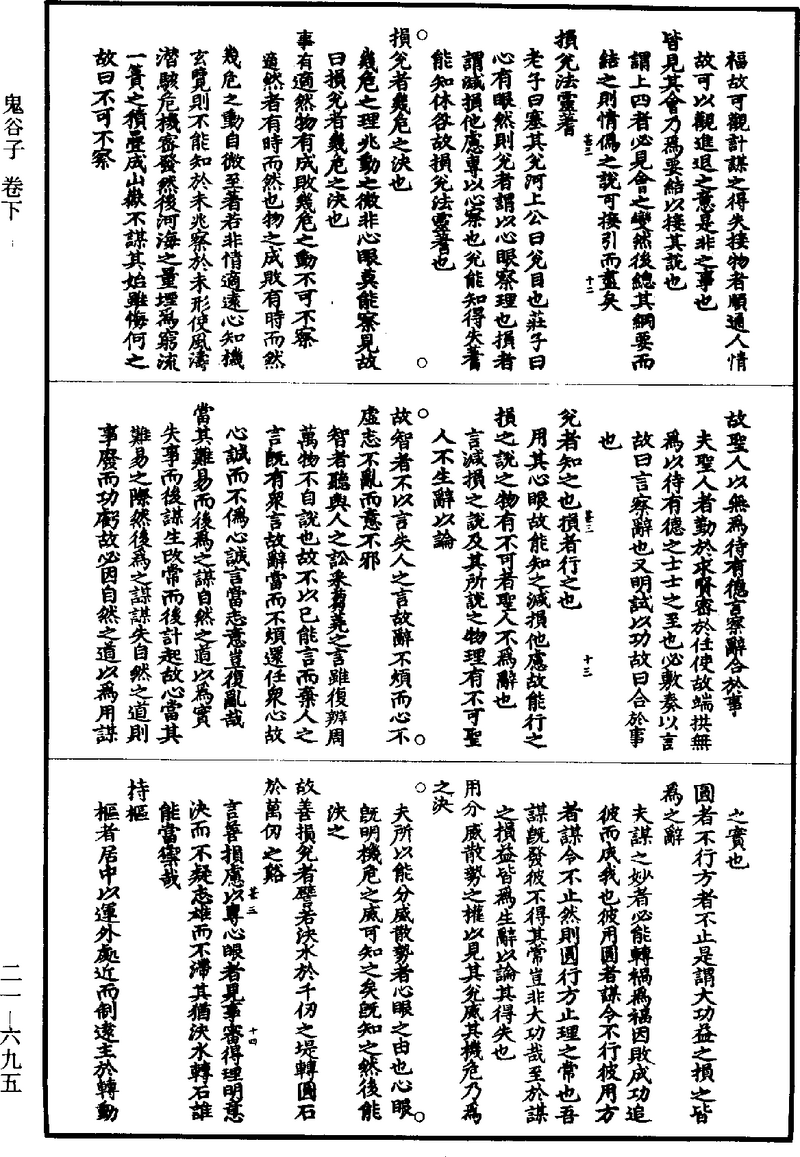 福故可觀計謀之得失接物者順通人情
故可以觀進退之意是非之事也
皆見其會乃爲要結以接其說也
謂上四者必見會之變然後總其綱要而
結之則情僞之說可接引而盡矣
甚二
十二
損兊法靈蓍
老子曰塞其兊河上公曰兊目也莊子曰
心有眼然則兊者謂以心眼察理也損者
謂減損他慮專以心察也兊能知得失蓍
能知休咎故損兊法靈蓍也
○
○
損兊者幾危之決也
幾危之理兆動之微非心眼莫能察見故
曰損兊者幾危之決也
事有適然物有成敗幾危之動不可不察
適然者有時而然也物之成敗有時而然
幾危之動自微至著若非情適遠心知機
玄覽則不能知於未兆察於未形使風濤
潛駭危機密發然後河海之量堙爲窮流
一簣之積疊成山嶽不謀其始雖悔何之
故曰不可不察
故聖人以無爲待有德言察辭合於事
夫聖人者勤於求賢密於任使故端拱無
爲以待有德之士士之至也必敷奏以言
故曰言察辭也又明試以功故曰合於事
也
甚三
十三
兊者知之也損者行之也
用其心眼故能知之減損他慮故能行之
損之說之物有不可者聖人不爲辭也
言減損之說及其所說之物理有不可聖
人不生辭以論
○
○
故智者不以言失人之言故辭不煩而心不
虛志不亂而意不邪
智者聽輿人之訟采蒭蕘之言雖復辯周
萬物不自說也故不以已能言而棄人之
言旣有衆言故辭當而不煩還任衆心故
心誠而不僞心誠言當志意豈復亂哉
當其難易而後爲之謀自然之道以爲實
失事而後謀生改常而後計起故心當其
難易之際然後爲之謀謀失自然之道則
事廢而功虧故必因自然之道以爲用謀
之實也
圓者不行方者不止是謂大功益之損之皆
爲之辭
夫謀之妙者必能轉禍爲福因敗成功追
彼而成我也彼用圓者謀令不行彼用方
者謀令不止然則圓行方止理之常也吾
謀旣發彼不得其常豈非大功哉至於謀
之損益皆爲生辭以論其得失也
用分威散勢之權以見其兊威其機危乃爲
之決
○
○
夫所以能分威散勢者心眼之由也心眼
旣明機危之威可知之矣旣知之然後能
決之
故善損兊者譬若決水於千仞之堤轉圓石
於萬仞之谿
甚三
十四
言善損慮以專心眼者見事審得理明意
決而不疑志雄而不滯其猶決水轉石誰
能當禦哉
持樞
樞者居中以運外處近而制遠主於轉動
鬼谷子 卷下
二一—六九五